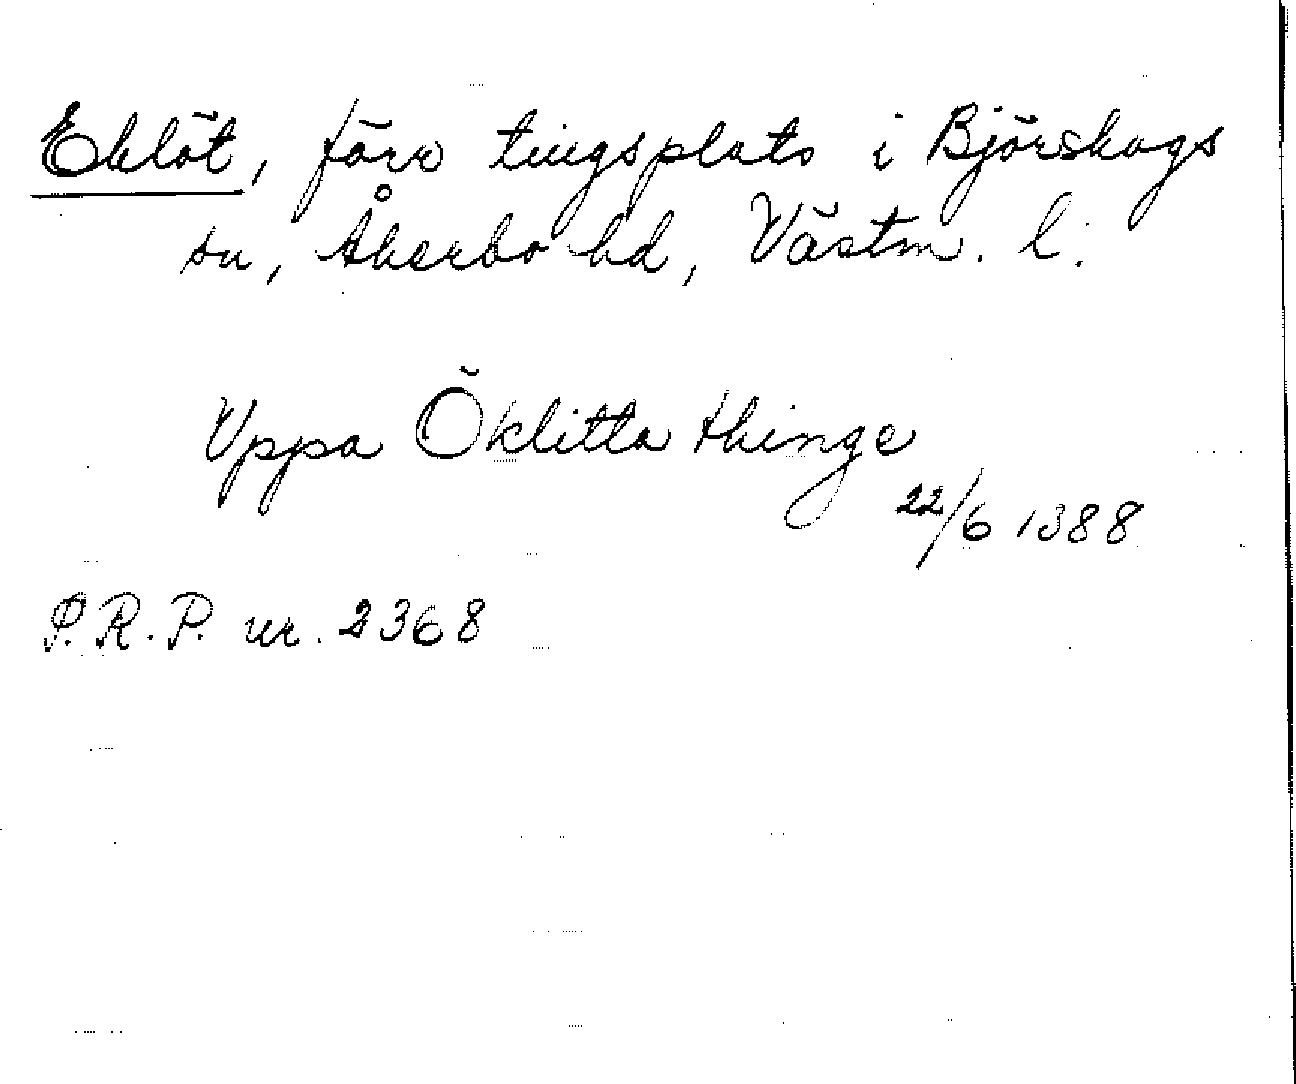 Eklöt, förr tingsplats i Björskogs
sn, Åkerbo hd, Västm. l.
Uppa Öklitta thinge
22/6 1388
P.R.P. nr. 2368